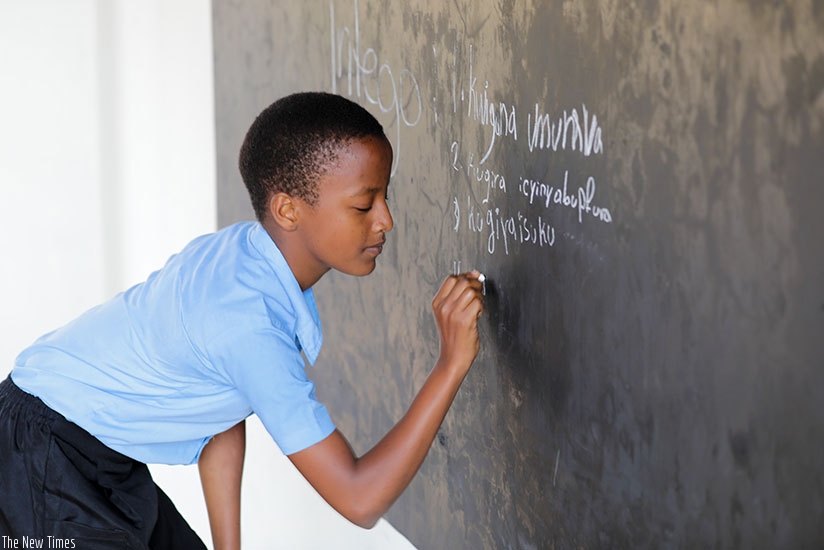 Intego : 1. Kwigana umurava
2. Kugira icyinyabupfura
3 Kugira isuku
The New Times